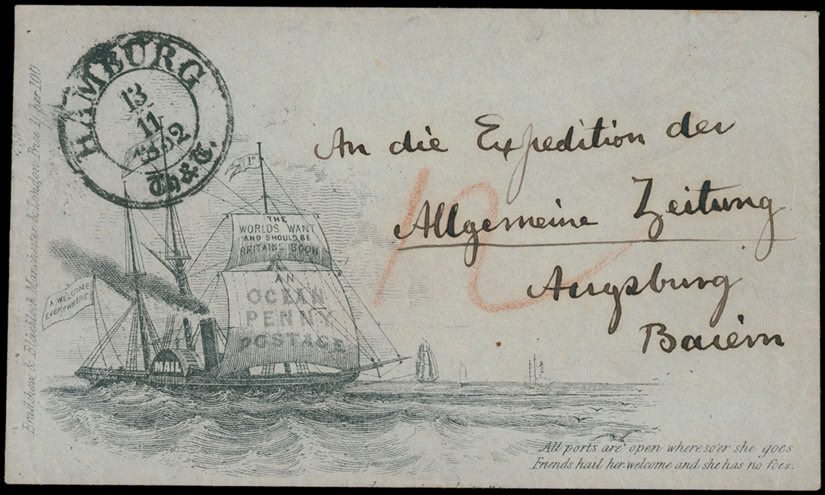 HAMBURG
13
11
1852
Th&T.
An die Expedition der
Allgemeine Zeitung
Augsburg
Baiern
12
P
THE
WORLDS WANT
AND SHOULD BE
BRITAINS BOON
AN
OCEAN
PENNY
POSTAGE
A WELCOME
EVERYWHERE
MAIL
Bradshaw & Blacklock Manchester & London Price 1/ per 100
All ports are open where so'er she goes
Friends hail her welcome and she has no foes.